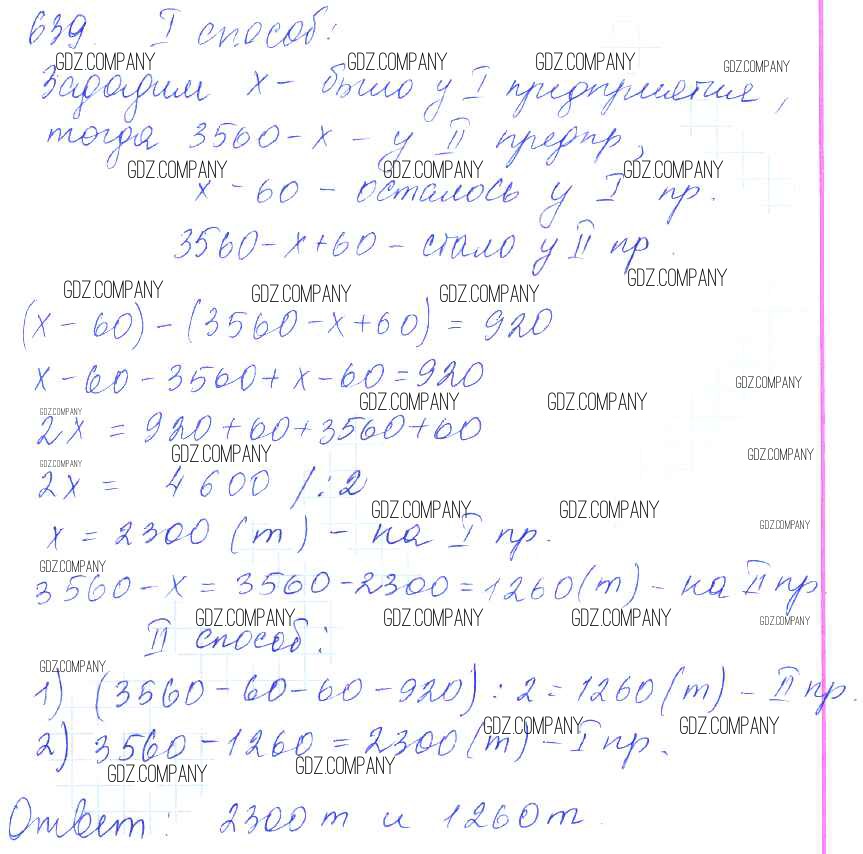 639. I способ:
GDZ.COMPANY GDZ.COMPANY GDZ.COMPANY GDZ.COMPANY
Зададим x - было у I предприятия,
тогда 3560-x - у II предпр,
GDZ.COMPANY GDZ.COMPANY GDZ.COMPANY
x - 60 - осталось у I пр.
3560-x+60 - стало у II пр.
GDZ.COMPANY GDZ.COMPANY GDZ.COMPANY GDZ.COMPANY
(x-60)-(3560-x+60) = 920
x-60-3560+x-60=920
GDZ.COMPANY GDZ.COMPANY GDZ.COMPANY GDZ.COMPANY
2x = 920+60+3560+60
GDZ.COMPANY GDZ.COMPANY GDZ.COMPANY
2x = 4600 /:2
GDZ.COMPANY GDZ.COMPANY GDZ.COMPANY
x = 2300 (т) - на I пр.
GDZ.COMPANY
3560-x = 3560-2300=1260(т) - на II пр.
GDZ.COMPANY GDZ.COMPANY GDZ.COMPANY GDZ.COMPANY
II способ:
GDZ.COMPANY
1) (3560-60-60-920):2=1260(т) - II пр.
GDZ.COMPANY GDZ.COMPANY
2) 3560-1260=2300(т) - I пр.
GDZ.COMPANY GDZ.COMPANY
Ответ: 2300т и 1260т.